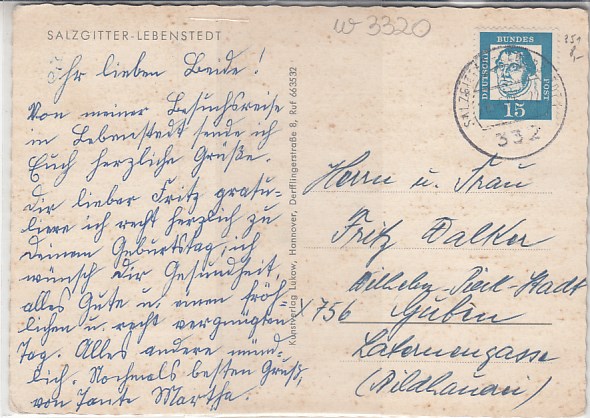 w 3320
SALZGITTER-LEBENSTEDT
Ihr lieben Beide!
Von meiner Besuchsreise
in Lebenstedt sende ich
Euch herzliche Grüße.
Dir lieber Fritz gratu-
liere ich recht herzlich zu
Deinem Geburtstag, ich
wünsch Dir Gesundheit,
alles Gute u. einen fröh-
lichen u. recht vergnügten
Tag. Alles andere münd-
lich. Nochmals besten Gruß,
von Tante Martha.
Kunstverlag Lukow, Hannover, Derfflingerstraße 8, Ruf 663532
DEUTSCHE
BUNDES
POST
15
SALZGITTER
332
Herrn u. Frau
Fritz Dalker
Wilhelm-Pieck-Stadt
X 756 Guben
Laternengasse